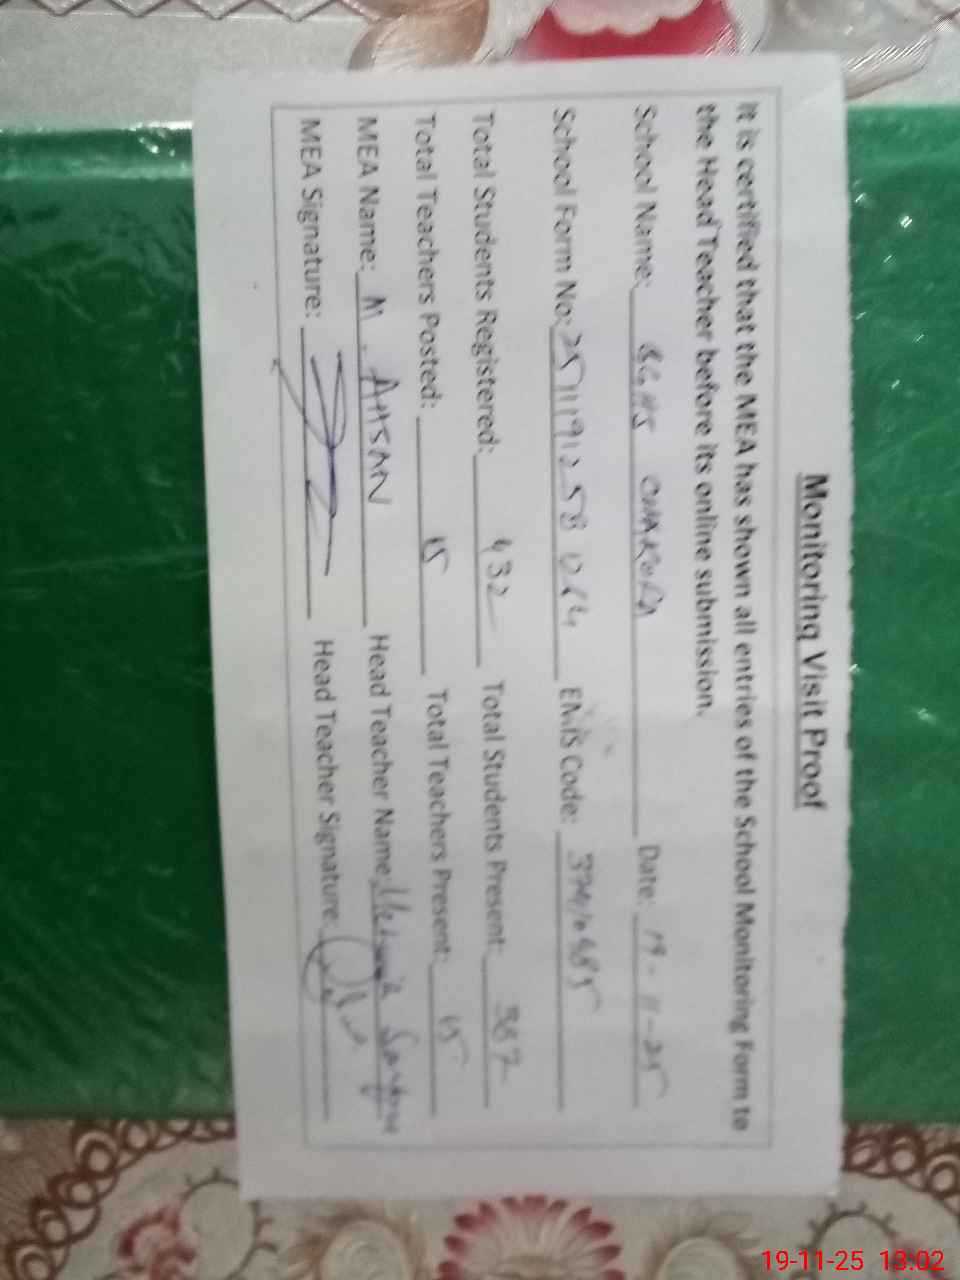 Monitoring Visit Proof
It is certified that the MEA has shown all entries of the School Monitoring Form to
the Head Teacher before its online submission.
School Name: Date: 19-11-25
School Form No: EMIS Code:
Total Students Registered: 432 Total Students Present:
Total Teachers Posted: 15 Total Teachers Present: 15
MEA Name: M. AHSAN Head Teacher Name:
MEA Signature: Head Teacher Signature:
19-11-25 13:02